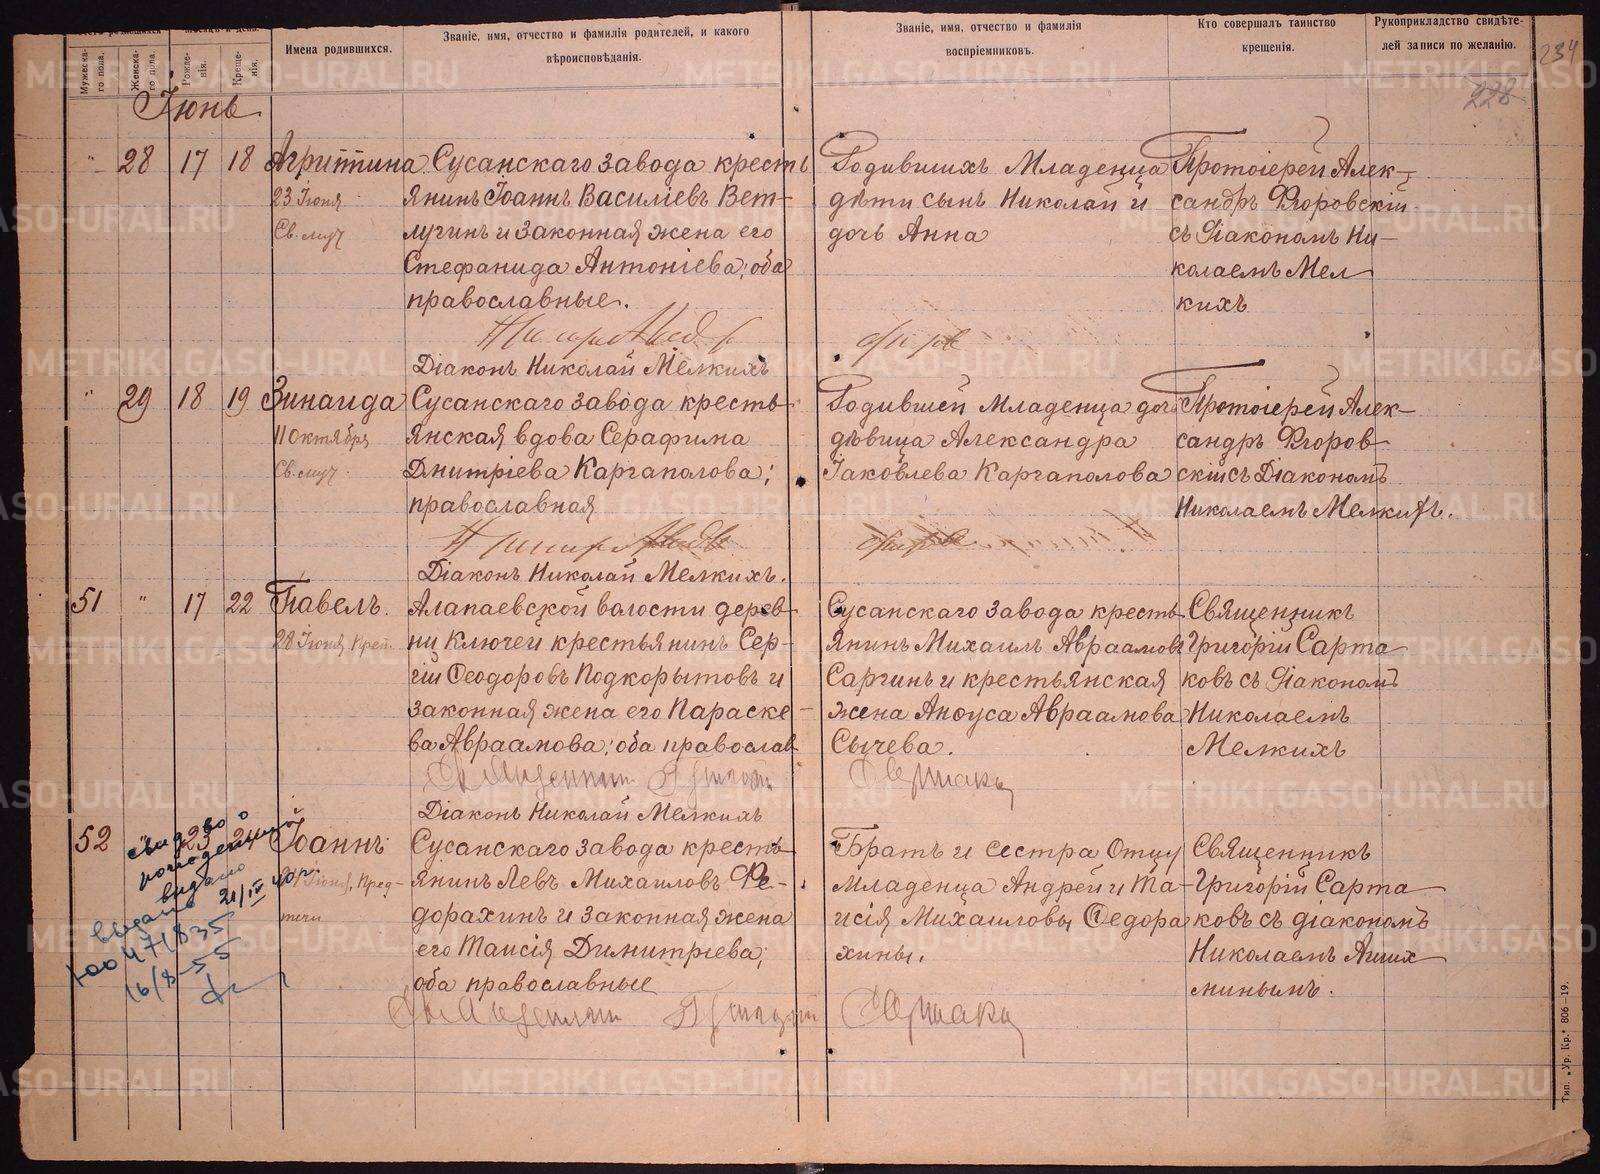 Мужеска-го пола.
Женска-го пола.
Рожде-нія.
Креще-нія.
Имена родившихся.
Званіе, имя, отчество и фамилія родителей, и какого
вѣроисповѣданія.
Званіе, имя, отчество и фамилія
воспріемниковъ.
Кто совершалъ таинство
крещенія.
Рукоприкладство свидѣте-
лей записи по желанію.
234
228
Іюнь
" 28 17 18 Агриппина
23 Іюня
Св. муч
Сусанскаго завода кресть
янинъ Іоаннъ Василіевъ Вет-
лугинъ и законная жена его
Стефанида Антоніева; оба
православные.
Діаконъ Николай Мелкихъ
Родившихъ младенца
дѣти сынъ Николай и
дочь Анна
Протоіерей Алек-
сандръ Флоровскій
съ Діакономъ Ни-
колаемъ Мел
кихъ
" 29 18 19 Зинаида
11 Октября
Св. муч.
Сусанскаго завода кресть-
янская вдова Серафима
Дмитріева Каргаполова;
православная
Діаконъ Николай Мелкихъ.
Родившей младенца дочь
дѣвица Александра
Іаковлева Каргаполова
Протоіерей Алек-
сандръ Флоров-
скій съ Діакономъ
Николаемъ Мелкихъ.
51 " 17 22 Павелъ.
28 Іюня Преп.
Алапаевской волости дерев-
ни Ключей крестьянинъ Сер-
гій Ѳеодоровъ Подкорытовъ и
законная жена его Параске-
ва Авраамова; оба православ
Священник Григорій
Діаконъ Николай Мелкихъ
Сусанскаго завода кресть
янинъ Михаилъ Авраамовъ
Саргинъ и крестьянская
жена Анѳуса Авраамова
Сычева.
Священникъ
Григорій Сарта
ковъ съ Діакономъ
Николаемъ
Мелкихъ
52 " 23 24 Іоаннъ
24 Іюня, Пред-
течи
Сусанскаго завода кресть-
янинъ Левъ Михаиловъ Ѳе-
дорахинъ и законная жена
его Таисія Димитріева;
оба православные
Священник Григорій
Братъ и сестра отцу
младенца Андрей и Та-
исія Михаиловы Ѳедора
хины.
Священникъ
Григорій Сарта
ковъ съ діакономъ
Николаемъ
свид-во о
рождении
выдано
21/IV
выдано
Ю-ао 471835
16/8-55
Тип. „Ур. Кр." 806—19.
METRIKI.GASO-URAL.RU